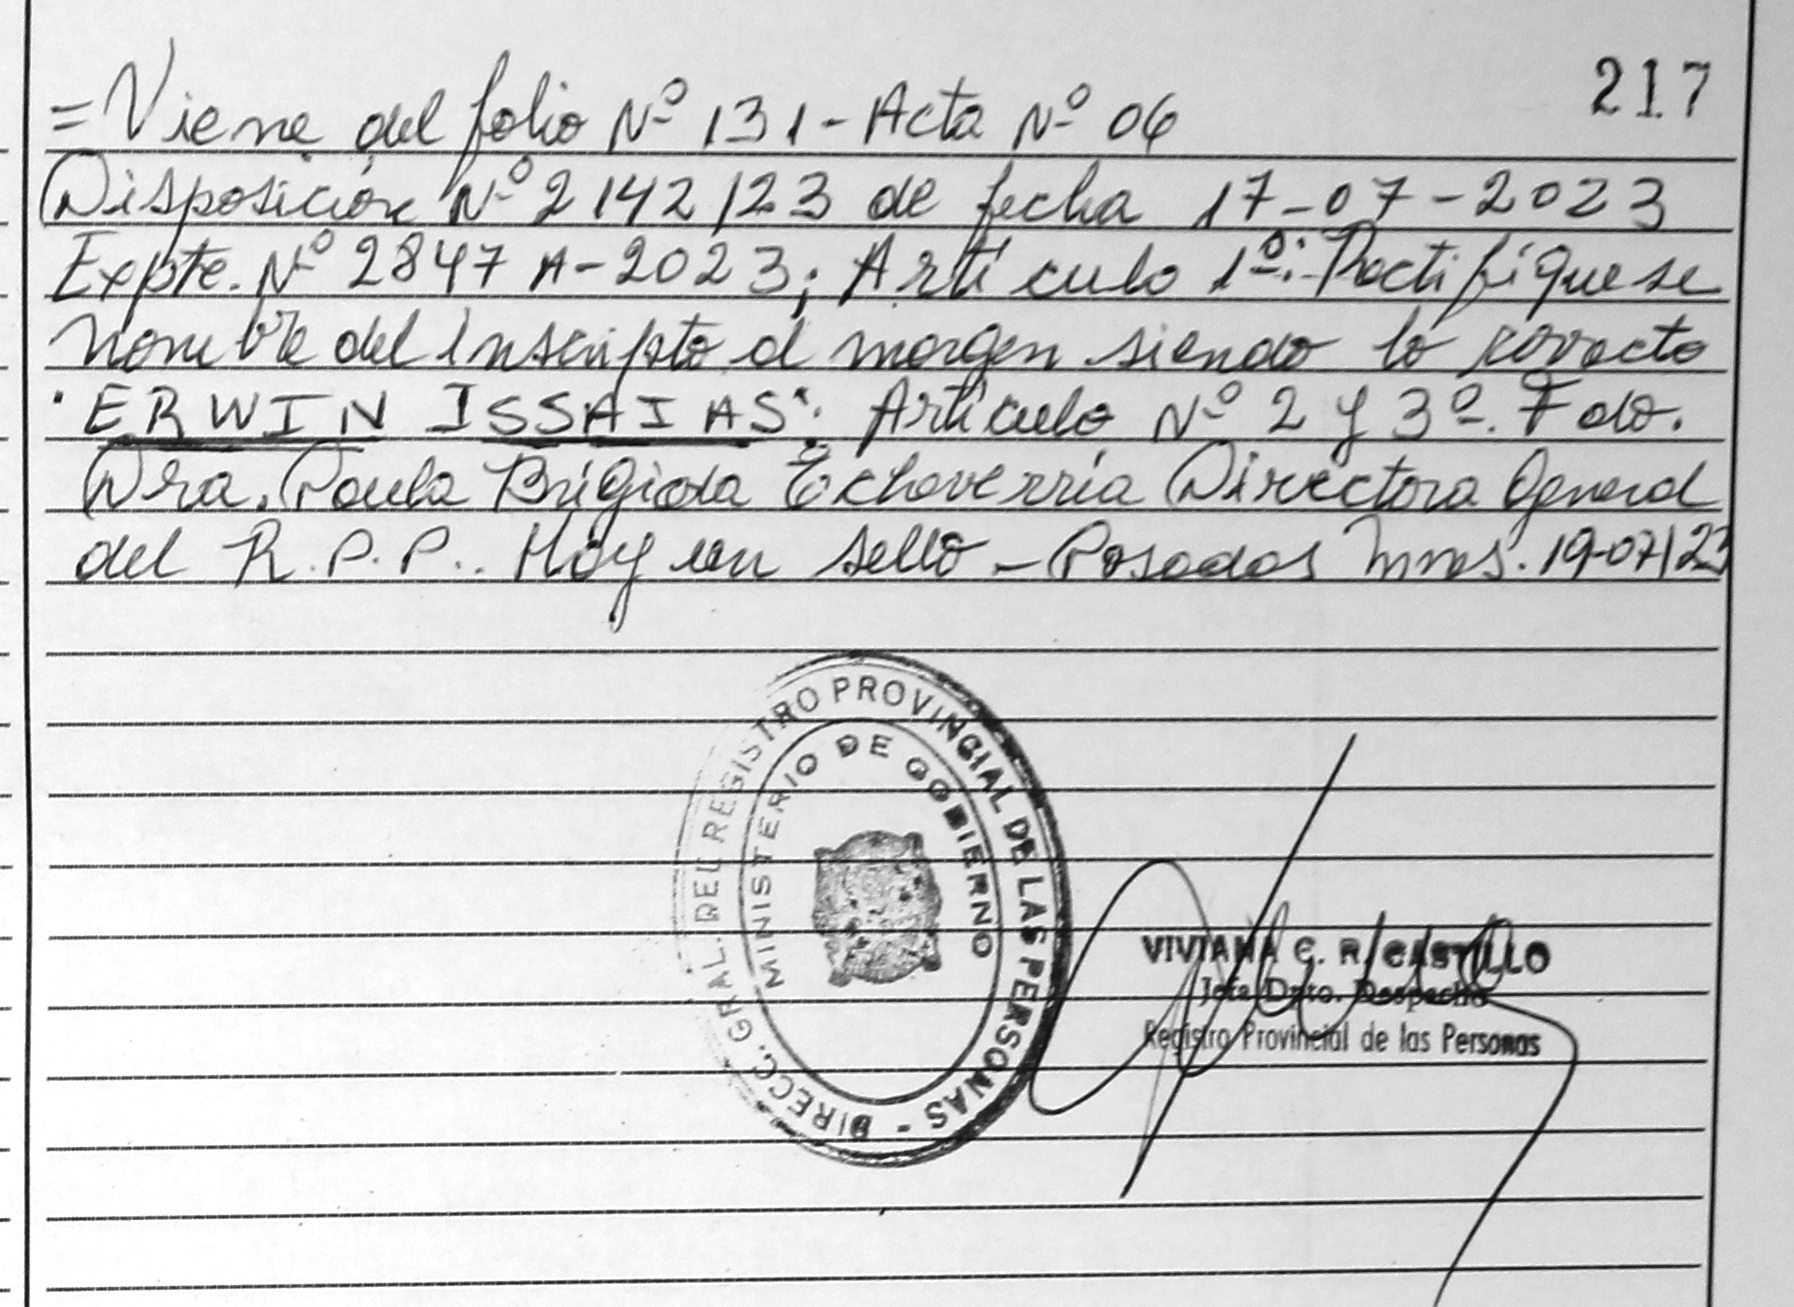 217
= Viene del folio Nº 131 - Acta Nº 06
Disposición Nº 2142/23 de fecha 17-07-2023
Expte. Nº 2847 A-2023; Artículo 1º: Rectifíquese
nombre del Inscripto al margen siendo lo correcto
"ERWIN ISSAIAS". Artículo Nº 2 y 3º. Fdo.
Dra. Paula Brígida Echeverría Directora General
del R.P.P.. Hay un sello - Posadas Mnes. 19-07/23
DIRECC. GRAL. DEL REGISTRO PROVINCIAL DE LAS PERSONAS -
MINISTERIO DE GOBIERNO
VIVIANA C. R. CASTILLO
Jefa Dpto. Despacho
Registro Provincial de las Personas